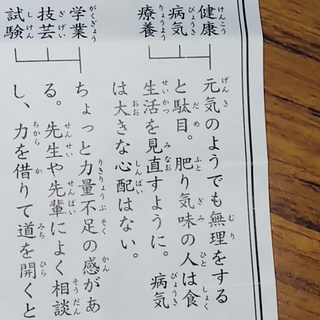 健康
病気
療養
元気のようでも無理をする
と駄目。肥り気味の人は食
生活を見直すように。病気
は大きな心配はない。
学業
技芸
試験
ちょっと力量不足の感があ
る。先生や先輩によく相談
し、力を借りて道を開くと